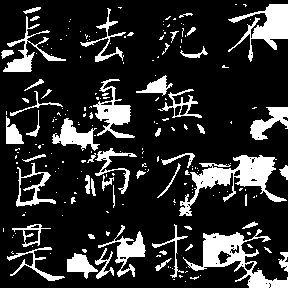 不敢愛
死無乃求
去憂而滋
長乎臣是